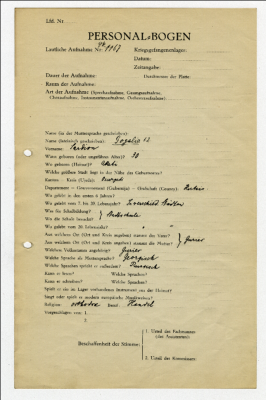 Lfd. Nr.
PERSONAL-BOGEN
Lautliche Aufnahme Nr.: 1167
Kriegsgefangenenlager:
Datum:
Zeitangabe:
Dauer der Aufnahme:
Durchmesser der Platte:
Raum der Aufnahme:
Art der Aufnahme (Sprechaufnahme, Gesangsaufnahme,
Choraufnahme, Instrumentenaufnahme, Orchesteraufnahme):
Name (in der Muttersprache geschrieben):
Name (lateinisch geschrieben):
Vorname:
Wann geboren (oder ungefähres Alter)? 30
Wo geboren (Heimat)?
Welche größere Stadt liegt in der Nähe des Geburtsortes?
Kanton — Kreis (Ujedz):
Departement — Gouvernement (Gubernija) — Grafschaft (County): Kutais
Wo gelebt in den ersten 6 Jahren?
Wo gelebt vom 7. bis 20. Lebensjahr?
Was für Schulbildung?
Wo die Schule besucht?
Wo gelebt vom 20. Lebensjahr?
Aus welchem Ort (Ort und Kreis angeben) stammt der Vater?
Aus welchem Ort (Ort und Kreis angeben) stammt die Mutter?
Gurier
Welchem Volksstamm angehörig? Gurier
Welche Sprache als Muttersprache? Georgisch
Welche Sprachen spricht er außerdem? Russisch
Kann er lesen? Welche Sprachen?
Kann er schreiben? Welche Sprachen?
Spielt er ein im Lager vorhandenes Instrument aus der Heimat?
Singt oder spielt er modern europäische Musikweisen?
Religion: orthodox Beruf: Handel
Vorgeschlagen von: 1.
2.
Beschaffenheit der Stimme:
1. Urteil des Fachmannes
(des Assistenten):
2. Urteil des Kommissars: